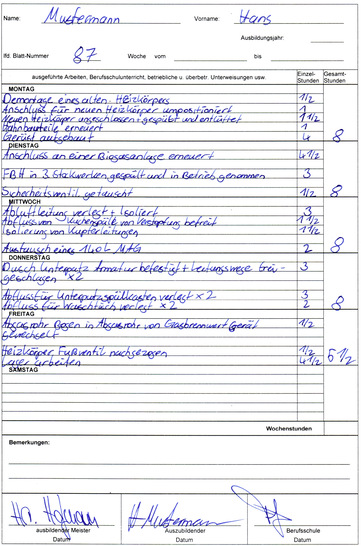 Name: Mustermann Vorname: Hans
Ausbildungsjahr:
lfd. Blatt-Nummer 87 Woche vom bis
ausgeführte Arbeiten, Berufsschulunterricht, betriebliche u. überbetr. Unterweisungen usw. Einzel-Stunden Gesamt-Stunden
MONTAG
Demontage eines alten Heizkörpers 1/2
Anschluss für neuen Heizkörper umpositioniert 1
Neuen Heizkörper angeschlossen + gespült und entlüftet 1 1/2
Zahnbauteile erneuert 1
Gerüst aufgebaut 4 8
DIENSTAG
Anschluss an einer Biogasanlage erneuert 4 1/2
FBH in 3 Stockwerken gespült und in Betrieb genommen 3
Sicherheitsventil getauscht 1/2 8
MITTWOCH
Abluftleitung verlegt + Isoliert 3
Abfluss von Küchenspüle von Verstopfung befreit 1 1/2
Isolierung von Kupferleitungen 1 1/2
Austausch eines 140L MAG 2 8
DONNERSTAG
Dusch Unterputz Armatur befestigt + Leitungswege
geschlagen x2 3
Abfluss für Unterputzspülkasten verlegt x2 3
Abfluss für Waschtisch verlegt x2 2 8
FREITAG
Abgasrohr Bogen in Abgasrohr von Gasbrennwert Gerät 1/2
gewechselt
Heizkörper Fußventil nachgezogen 1/2
Lagerarbeiten 4 1/2
SAMSTAG
Wochenstunden
Bemerkungen:
Mustermann
ausbildender Meister Auszubildender Berufsschule
Datum Datum Datum